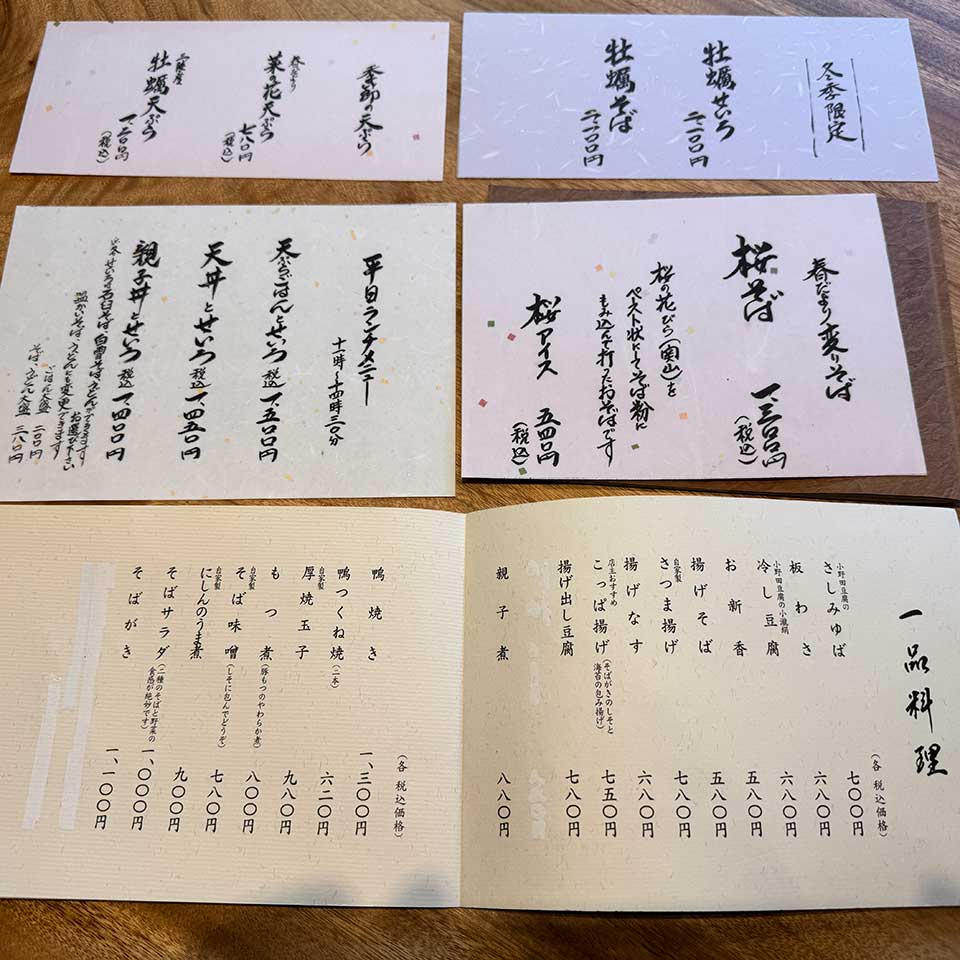 冬季限定
牡蠣せいろ 二、一〇〇円
牡蠣そば 二、一〇〇円
季節の天ぷら
春だより 菜の花天ぷら 七八〇円(税込)
三陸産 牡蠣天ぷら 一、二〇〇円(税込)
春だより変りそば
桜そば 一、三〇〇円(税込)
桜の花びら(関山)を
ペースト状にしてそば粉に
もみ込んで打ったおそばです
桜アイス 五四〇円(税込)
平日ランチメニュー
十一時〜十四時三〇分
天ぷらごはんとせいろ 税込 一、五〇〇円
天丼とせいろ 税込 一、四五〇円
親子丼とせいろ 税込 一、四〇〇円
せいろは石臼そば、白雪そば、うどんができます
お選び下さい
温かいそば、うどんにも変更できます
ごはん大盛 二〇〇円
そば、うどん大盛 三八〇円
一品料理
(各税込価格)
小野田豆腐の さしみゆば 七〇〇円
板わさ 六八〇円
小野田豆腐の小瀧絹 冷し豆腐 六八〇円
お新香 五八〇円
揚げそば 五八〇円
自家製 さつま揚げ 七八〇円
揚げなす 六八〇円
店主おすすめ こっぱ揚げ (そばがきのしそと海苔の包み揚げ) 七五〇円
揚げ出し豆腐 七八〇円
親子煮 八八〇円
(各税込価格)
鴨焼き 一、三〇〇円
鴨つくね焼 (二本) 六二〇円
自家製 厚焼玉子 九八〇円
もつ煮 (豚もつのやわらか煮) 八〇〇円
自家製 そば味噌 (しそに包んでどうぞ) 七八〇円
自家製 にしんのうま煮 九〇〇円
そばサラダ (二種のそばと野菜の食感が絶妙です) 一、〇〇〇円
そばがき 一、一〇〇円